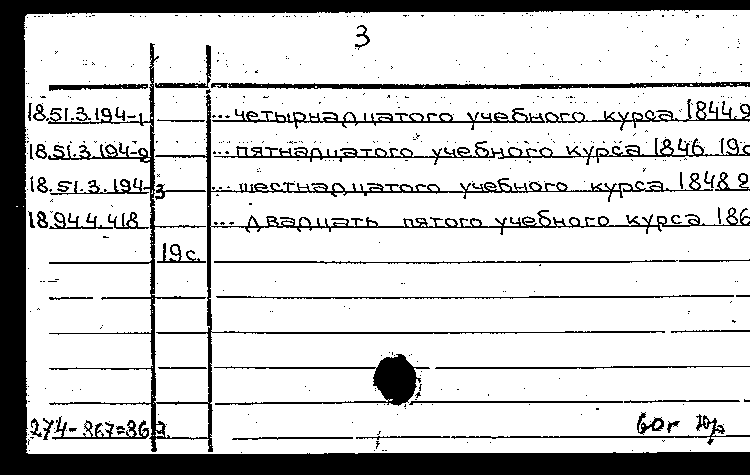 3
18.51.3.194-1 ...четырнадцатого учебного курса. 1844.
18.51.3.194-2 ...пятнадцатого учебного курса 1846 19с
18.51.3.194-3 ...шестнадцатого учебного курса. 1848
18.94.4.418 ...двадцать пятого учебного курса. 186
19с.
274-867=86